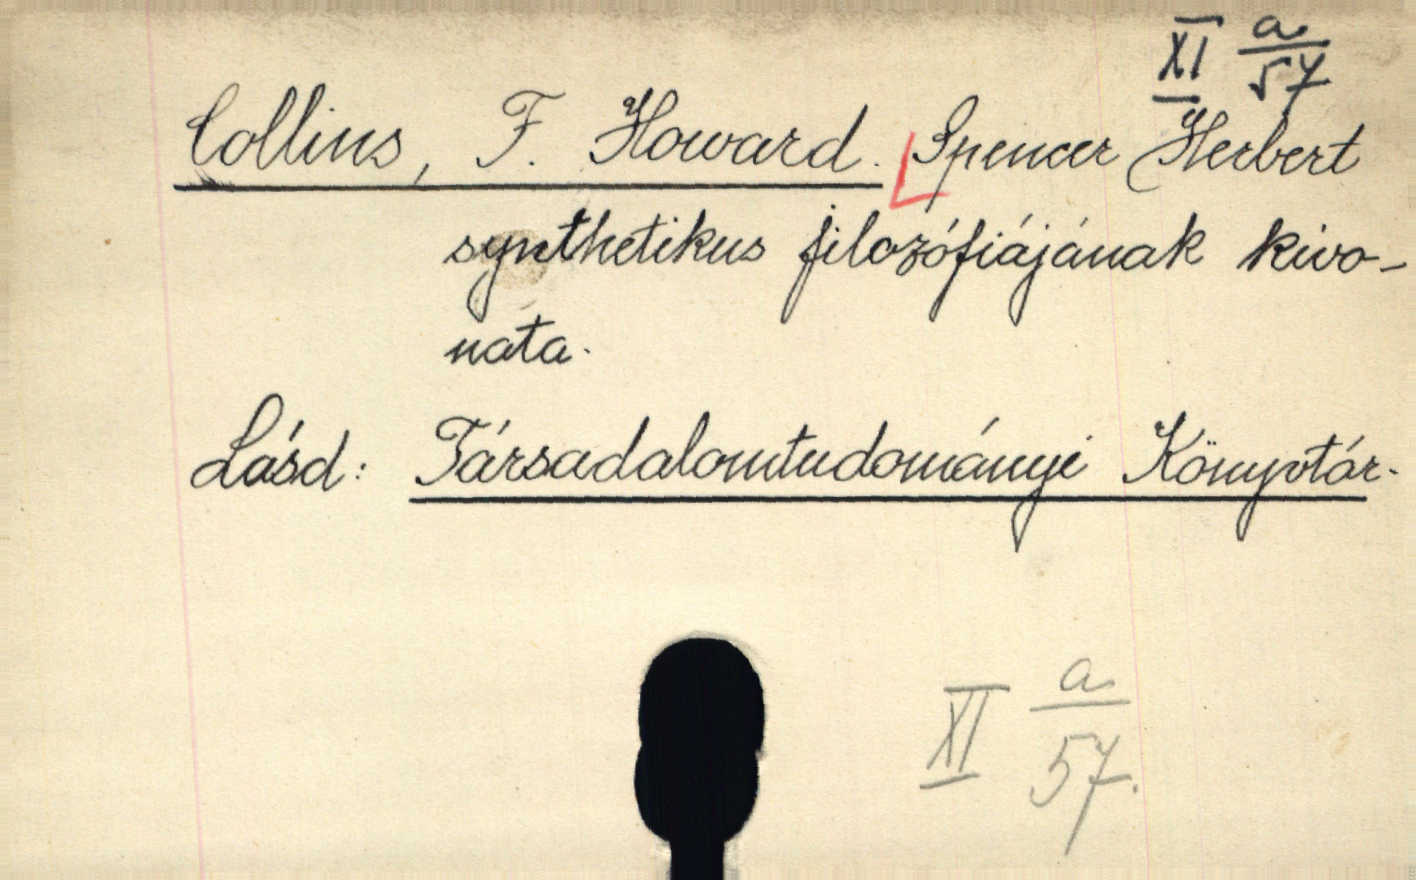 XI a/57
Collins, F. Howard. Spencer Herbert
synthetikus filozófiájának kivo-
nata.
Lásd: Társadalomtudományi Könyvtár.
XI a/57.